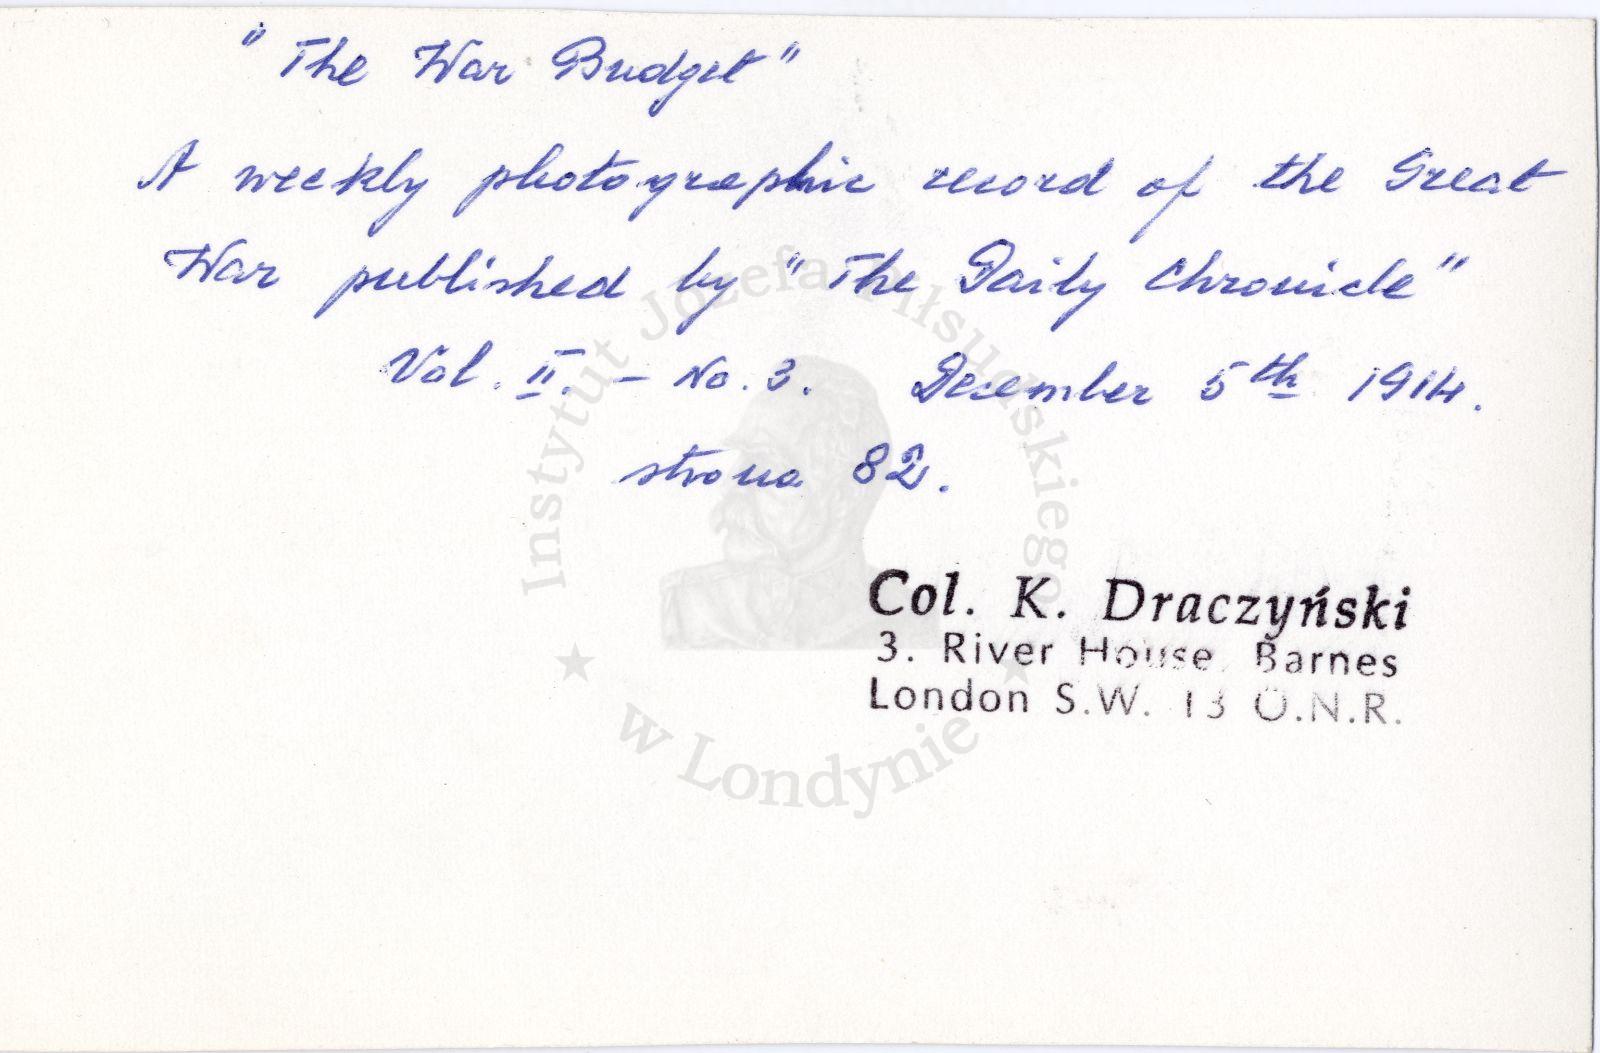 "The War Budget"
A weekly photographic record of the Great
War published by "The Daily Chronicle"
Vol. II. – No. 3. December 5th 1914.
strona 82.
Col. K. Draczyński
3. River House, Barnes
London S.W. 13 O.N.R.
Instytut Józefa Piłsudskiego
w Londynie